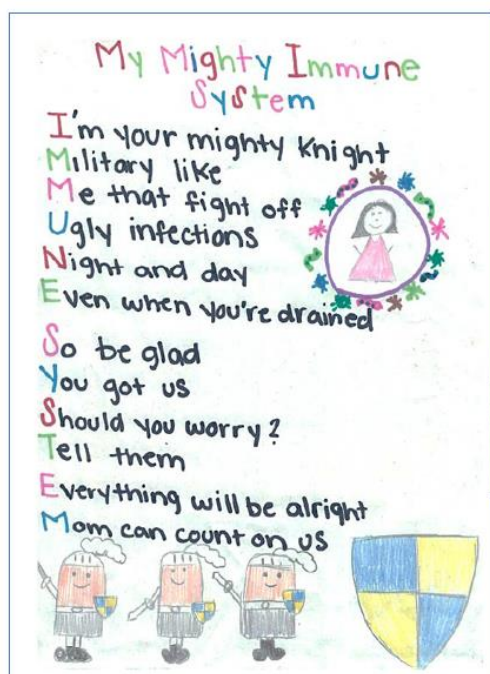 My Mighty Immune
System
I'm your mighty Knight
Military like
Me that fight off
Ugly infections
Night and day
Even when you're drained
So be glad
You got us
Should you worry?
Tell them
Everything will be alright
Mom can count on us